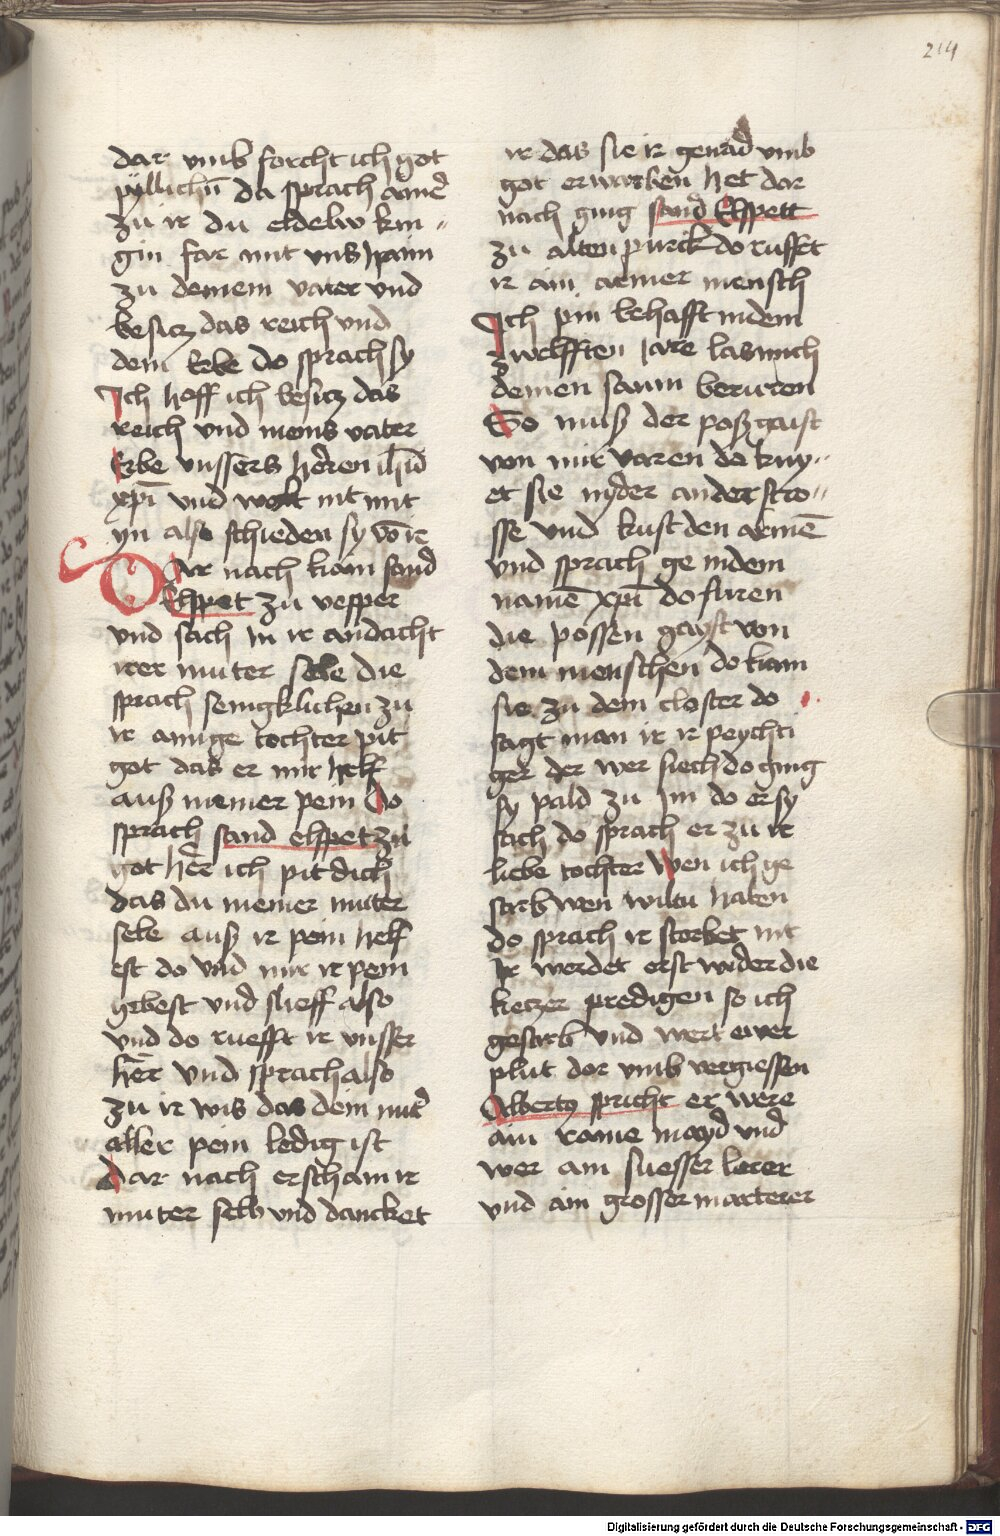 214
dar vmb forcht ich got
pyllichn̄ da sprach ainer
zu ir du eldelw kin„
gin far mit vns haim
zu deinem vater vnd
besicz das reich vnd
dem erbe do sprach sy
Ich hoff ich besicz das
reich vnd meins vater
Erbe vnssers herren ihū
xpi vnd wolt nit mit
yn also schieden sy vō ir
Dar nach kom sand
Elspet zu vesper
vnd sach in ir andacht
irer muter sele die
sprach senigklichen zu
ir ainige tochter pit
got das er mir helf
auß meiner pein Do
sprach sand elspet zu
got her ich pit dich
das du meiner muter
sele auß ir pein helf
est do vnd mir ir pein
gebest vnd slieff also
vnd do ruefft ir vnsser
her vnd sprach also
zu ir wis das dein muter
aller pein ledig ist
Dar nach erscham ir
muter selb vnd dancket
ir das sie ir genad vmb
got erworben het dar
nach ging sand Elspett
zu alten purck do rufft
ir ain armer mensch
Ich pin behafft in dem
zwelfften jare las mich
deinen saum beruren
So muß der poß gaist
von mir varen da kny„
et sie nyder an der stro„
sse vnd kust den armē
vnd sprach ge in dem
namē xpi do furen
die possen gayst von
dem menschen do kam
sie zu dem closter do
sagt man ir ir peychti
ger der wer siech do ging
sy pald zu jm do er sy
sach do sprach er zu ir
liebe tochter Wen ich ge
starb wen wiltu haben
do sprach ir storbet nit
Ir werdet erst wider die
keczer predigen so ich
gestirb vnd wert ewer
plut dor vmb vergiessen
Albertus spricht er were
ain raine mayd vnd
wer ain suesser lerer
vnd ain grosser marterer
Digitalisierung gefördert durch die Deutsche Forschungsgemeinschaft - DFG